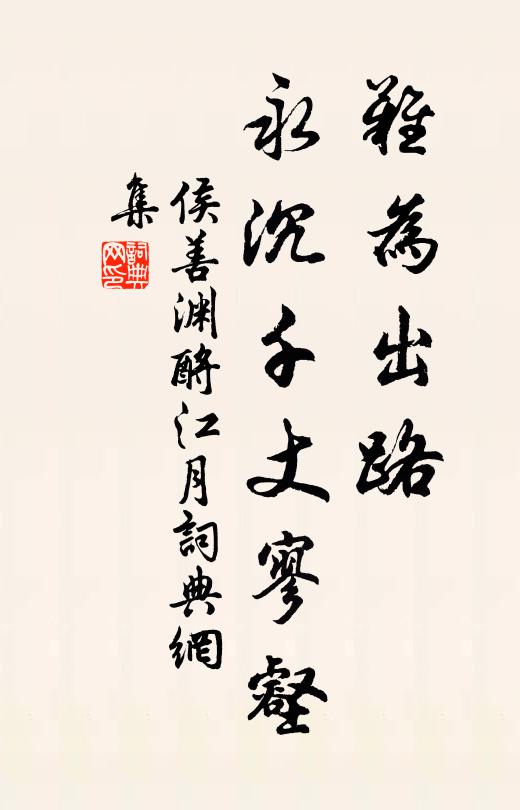 難為出路
永沉千丈寥壑
侯善淵酹江月詞典網
集
詞典
网印